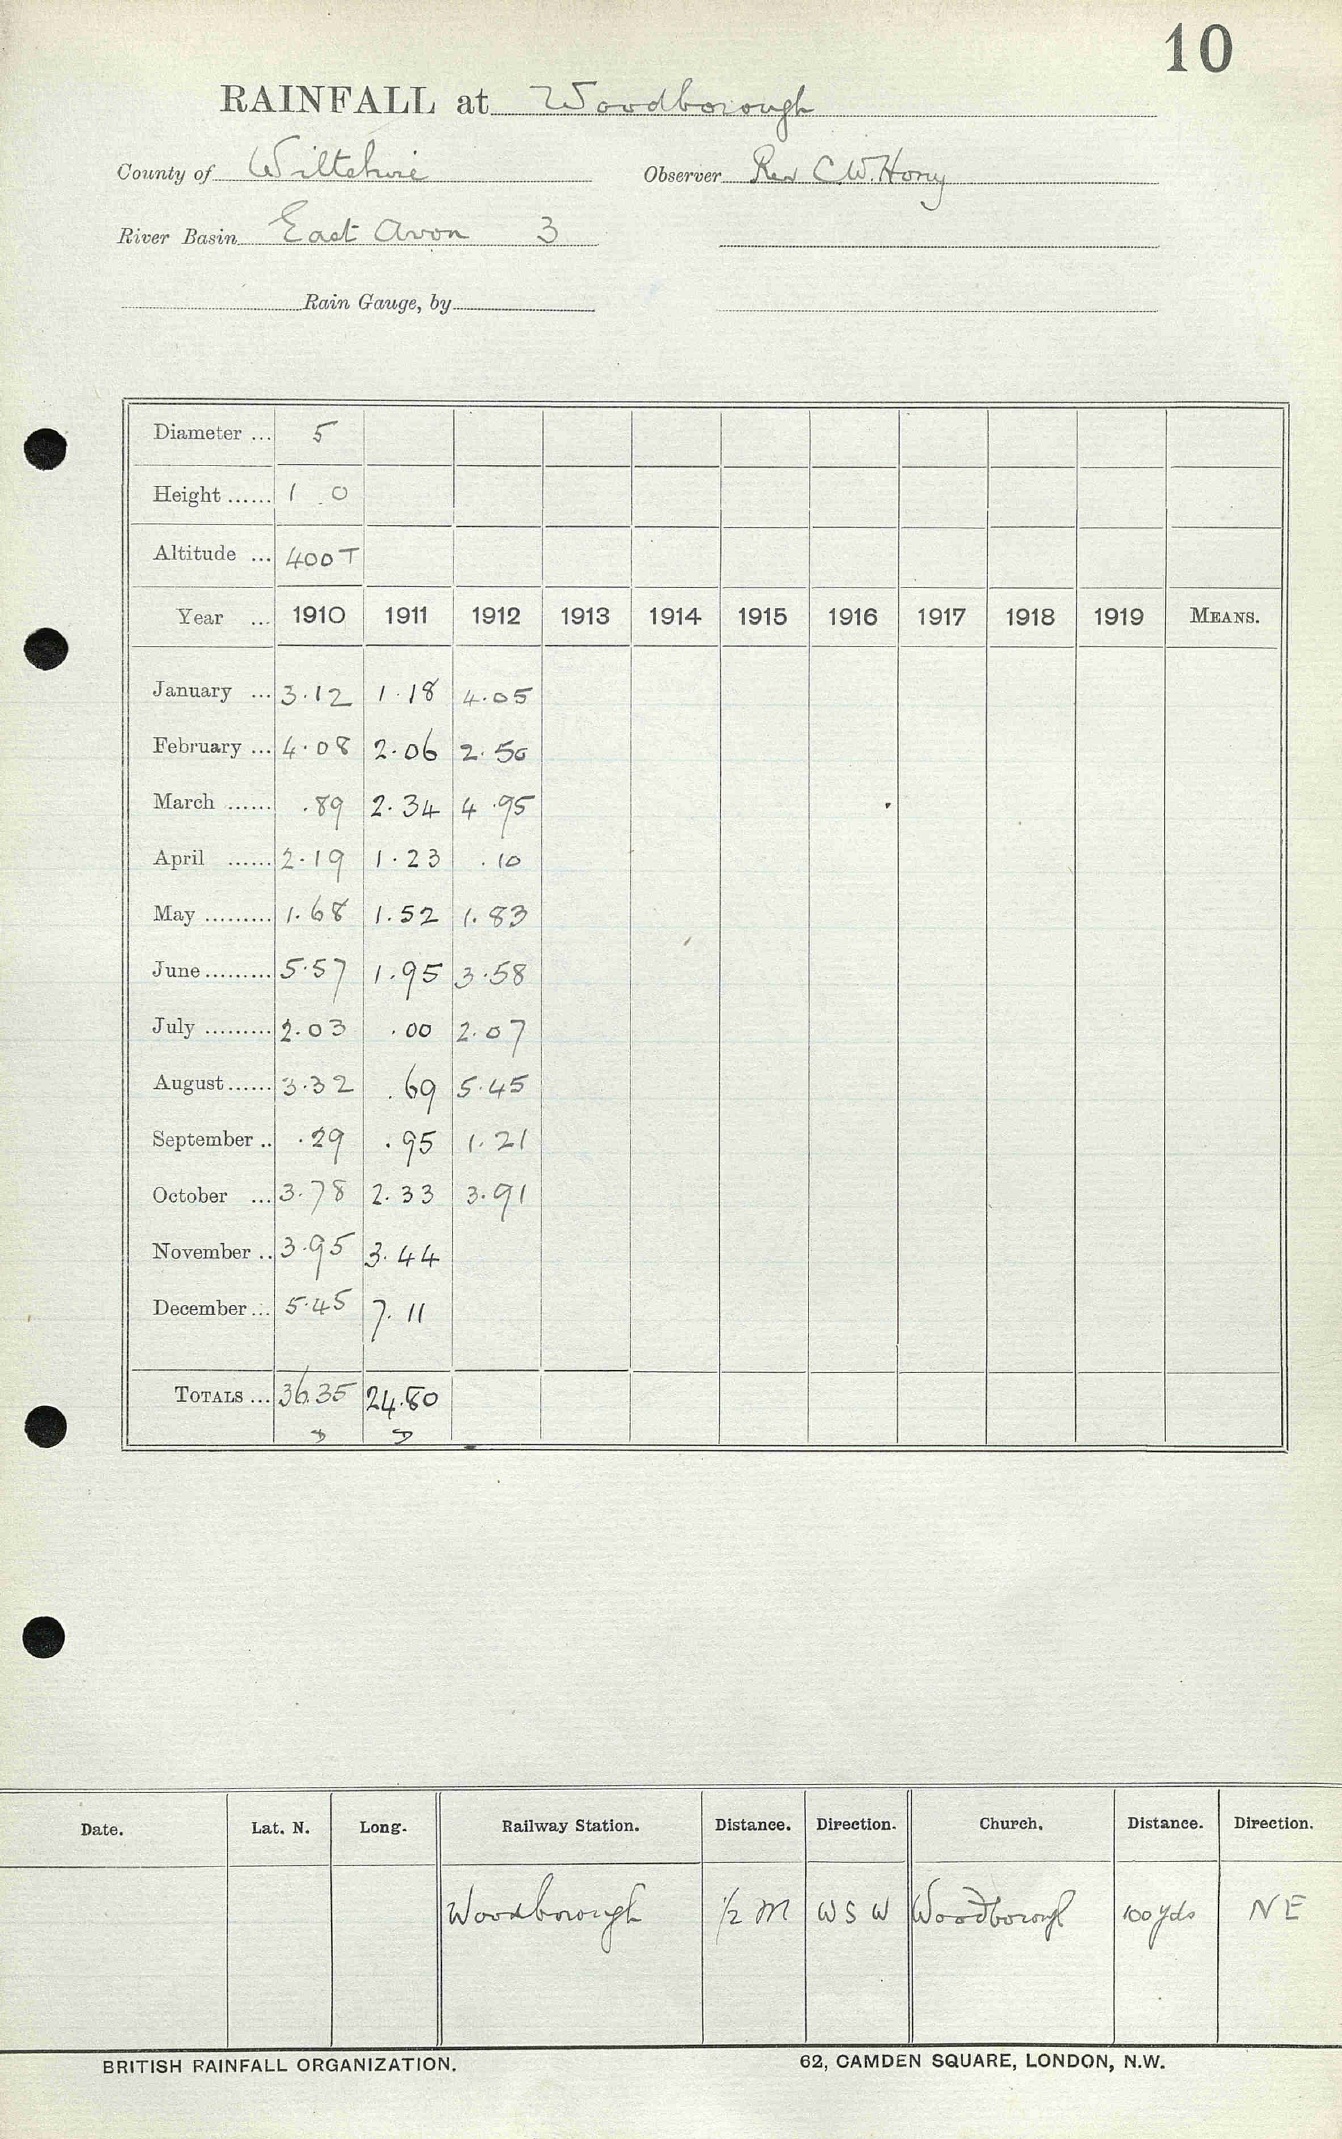 10
RAINFALL at Woodborough
County of Wiltshire Observer Rev C.W. Hony
River Basin East Avon 3
Rain Gauge, by
Diameter ... 5
Height ...... 1 . 0
Altitude ... 400 T
Year ... 1910 1911 1912 1913 1914 1915 1916 1917 1918 1919 MEANS.
January ... 3.12 1.18 4.05
February ... 4.08 2.06 2.50
March ...... .89 2.34 4.95
April ...... 2.19 1.23 .10
May ......... 1.68 1.52 1.83
June ......... 5.57 1.95 3.58
July ......... 2.03 .00 2.07
August ...... 3.32 .69 5.45
September .. .29 .95 1.21
October ... 3.78 2.33 3.91
November .. 3.95 3.44
December ... 5.45 7.11
TOTALS ... 36.35 24.80
Date. Lat. N. Long. Railway Station. Distance. Direction. Church. Distance. Direction.
Woodborough 1/2 M W S W Woodborough 100 yds N E
BRITISH RAINFALL ORGANIZATION. 62, CAMDEN SQUARE, LONDON, N.W.